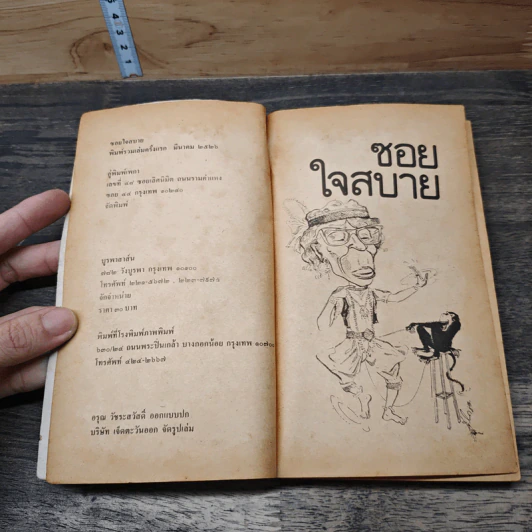 ซอยใจสบาย
พิมพ์รวมเล่มครั้งแรก มีนาคม ๒๕๒๖
เลขที่ ๔๙ ซอยเลิศนิมิต ถนนรามคำแหง
ซอย ๔๔ กรุงเทพ ๑๐๒๔๐
จัดพิมพ์
บูรพาสาส์น
๗๗๒ วังบูรพา กรุงเทพ ๑๐๒๐๐
โทรศัพท์
จัดจำหน่าย
ราคา ๓๐ บาท
พิมพ์ที่โรงพิมพ์ภาพพิมพ์
๖๓๐/๒๔ ถนนพระปิ่นเกล้า บางกอกน้อย กรุงเทพ ๑๐๗๐๐
โทรศัพท์ ๔๒๔-๒๖๖๗
อรุณ วัชระสวัสดิ์ ออกแบบปก
บริษัท เจ็ดตะวันออก จัดรูปเล่ม
ซอย
ใจสบาย
4
3
2
1